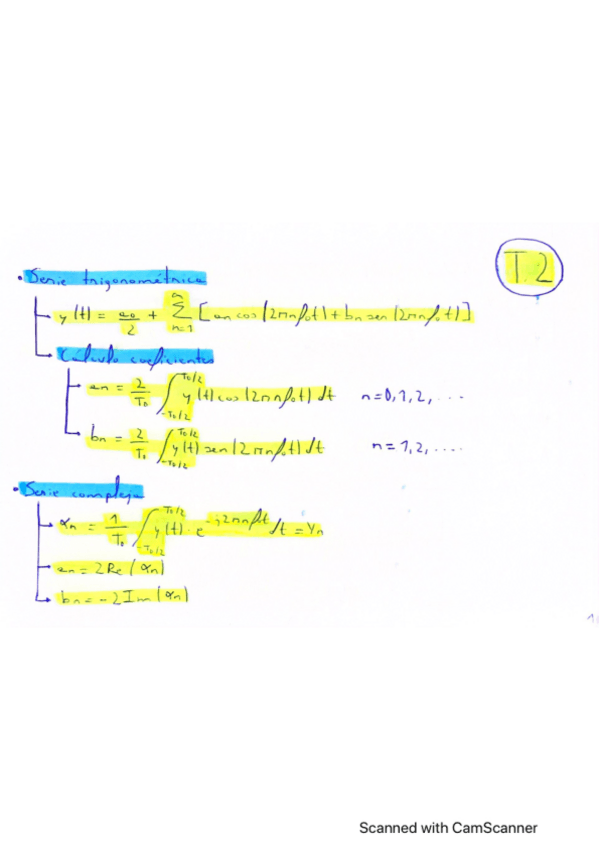 T.2
• Serie trigonométrica
y(t) = a₀/2 + Σ n=1 [an cos(2πnf₀t) + bn sen(2πnf₀t)]
Cálculo coeficientes
an = 2/T₀ ∫_{-T₀/2}^{T₀/2} y(t) cos(2πnf₀t) dt n=0,1,2,...
bn = 2/T₀ ∫_{-T₀/2}^{T₀/2} y(t) sen(2πnf₀t) dt n=1,2,....
• Serie compleja
αn = 1/T₀ ∫_{-T₀/2}^{T₀/2} y(t)·e^{-j2πnft} dt = Yn
an = 2Re(αn)
bn = -2Im(αn)
1
Scanned with CamScanner